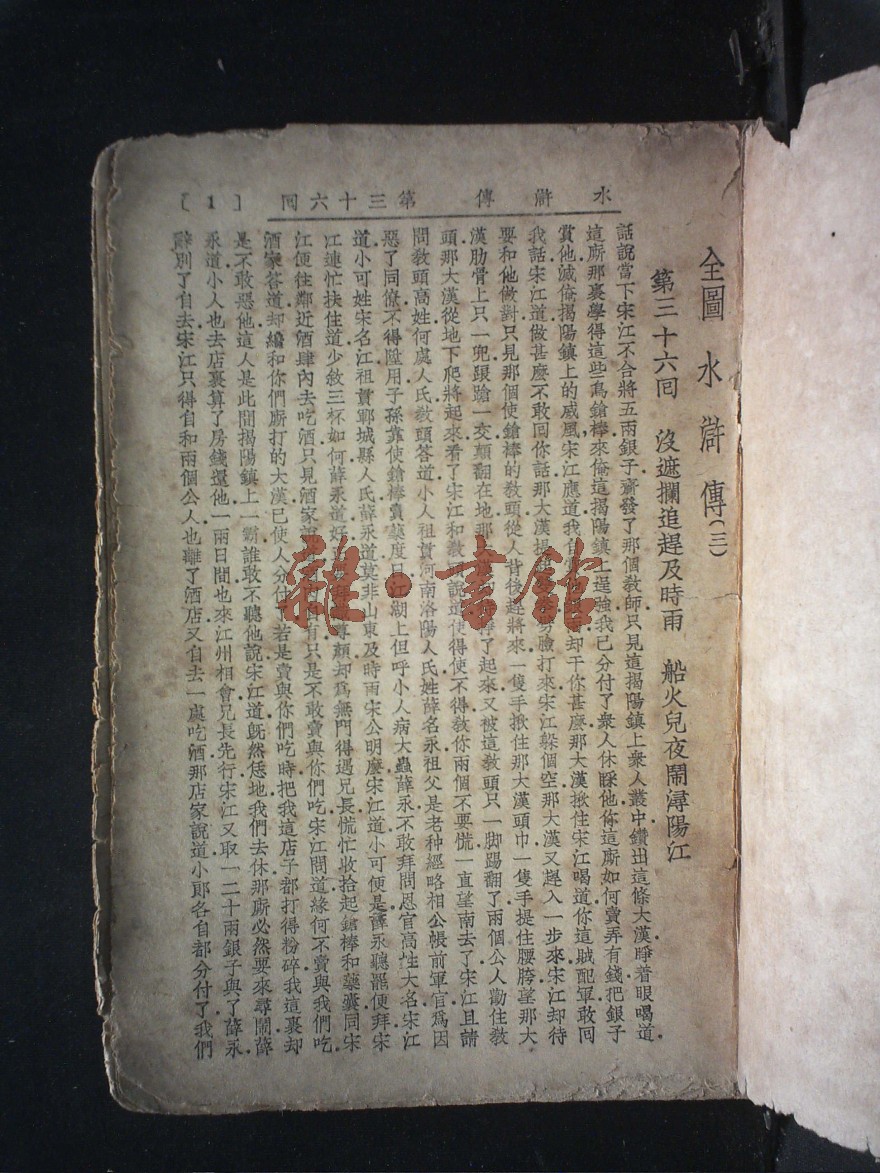 水滸傳　第三十六回　[1]
全圖水滸傳(三)
第三十六回　沒遮攔追趕及時雨　船火兒夜鬧潯陽江
話說當下宋江不合將五兩銀子齎發了那個教師只見這揭陽鎮上衆人叢中鑽出這條大漢睜着眼喝道
這廝那裏學得這些鳥鎗棒來俺這揭陽鎮上逞強我已分付了衆人休睬他你這廝如何賣弄有錢把銀子
賞他滅俺揭陽鎮上的威風宋江應道我自賞他銀兩却干你甚麽那大漢揪住宋江喝道你這賊配軍敢回
我話宋江道做甚麽不敢回你話那大漢提起雙拳劈臉打來宋江躲個空那大漢又趕入一步來宋江却待
要和他做對只見那個使鎗棒的教頭從人背後趕將來一隻手揪住那大漢頭巾一隻手提住腰胯望那大
漢肋骨上只一兜踉蹌一交顛翻在地那大漢却待掙了起來又被這教頭只一脚踢翻了兩個公人勸住教
頭那大漢從地下爬將起來看了宋江和教頭說道使得使不得教你兩個不要慌一直望南去了宋江且請
問教頭高姓何處人氏教頭答道小人祖貫河南洛陽人氏姓薛名永祖父是老种經略相公帳前軍官爲因
惡了同僚不得陞用子孫靠使鎗棒賣藥度日江湖上但呼小人病大蟲薛永不敢拜問恩官高性大名宋江
道小可姓宋名江祖貫鄆城縣人氏薛永道莫非山東及時雨宋公明麽宋江道小可便是薛永聽罷便拜宋
江連忙扶住道少敘三杯如何薛永道好正要拜識尊顏却爲無門得遇兄長慌忙收拾起鎗棒和藥囊同宋
江便往鄰近酒肆內去吃酒只見酒家說道酒肉自有只是不敢賣與你們吃宋江問道緣何不賣與我們吃
酒家答道却纔和你們廝打的大漢已使人分付了若是賣與你們吃時把我這店子都打得粉碎我這裏却
是不敢惡他這人是此間揭陽鎮上一霸誰敢不聽他說宋江道旣然恁地我們去休那廝必然要來尋鬧薛
永道小人也去店裏算了房錢還他一兩日間也來江州相會兄長先行宋江又取一二十兩銀子與了薛永
辭別了自去宋江只得自和兩個公人也離了酒店又自去一處吃酒那店家說道小郞各自都分付了我們
雜·書館